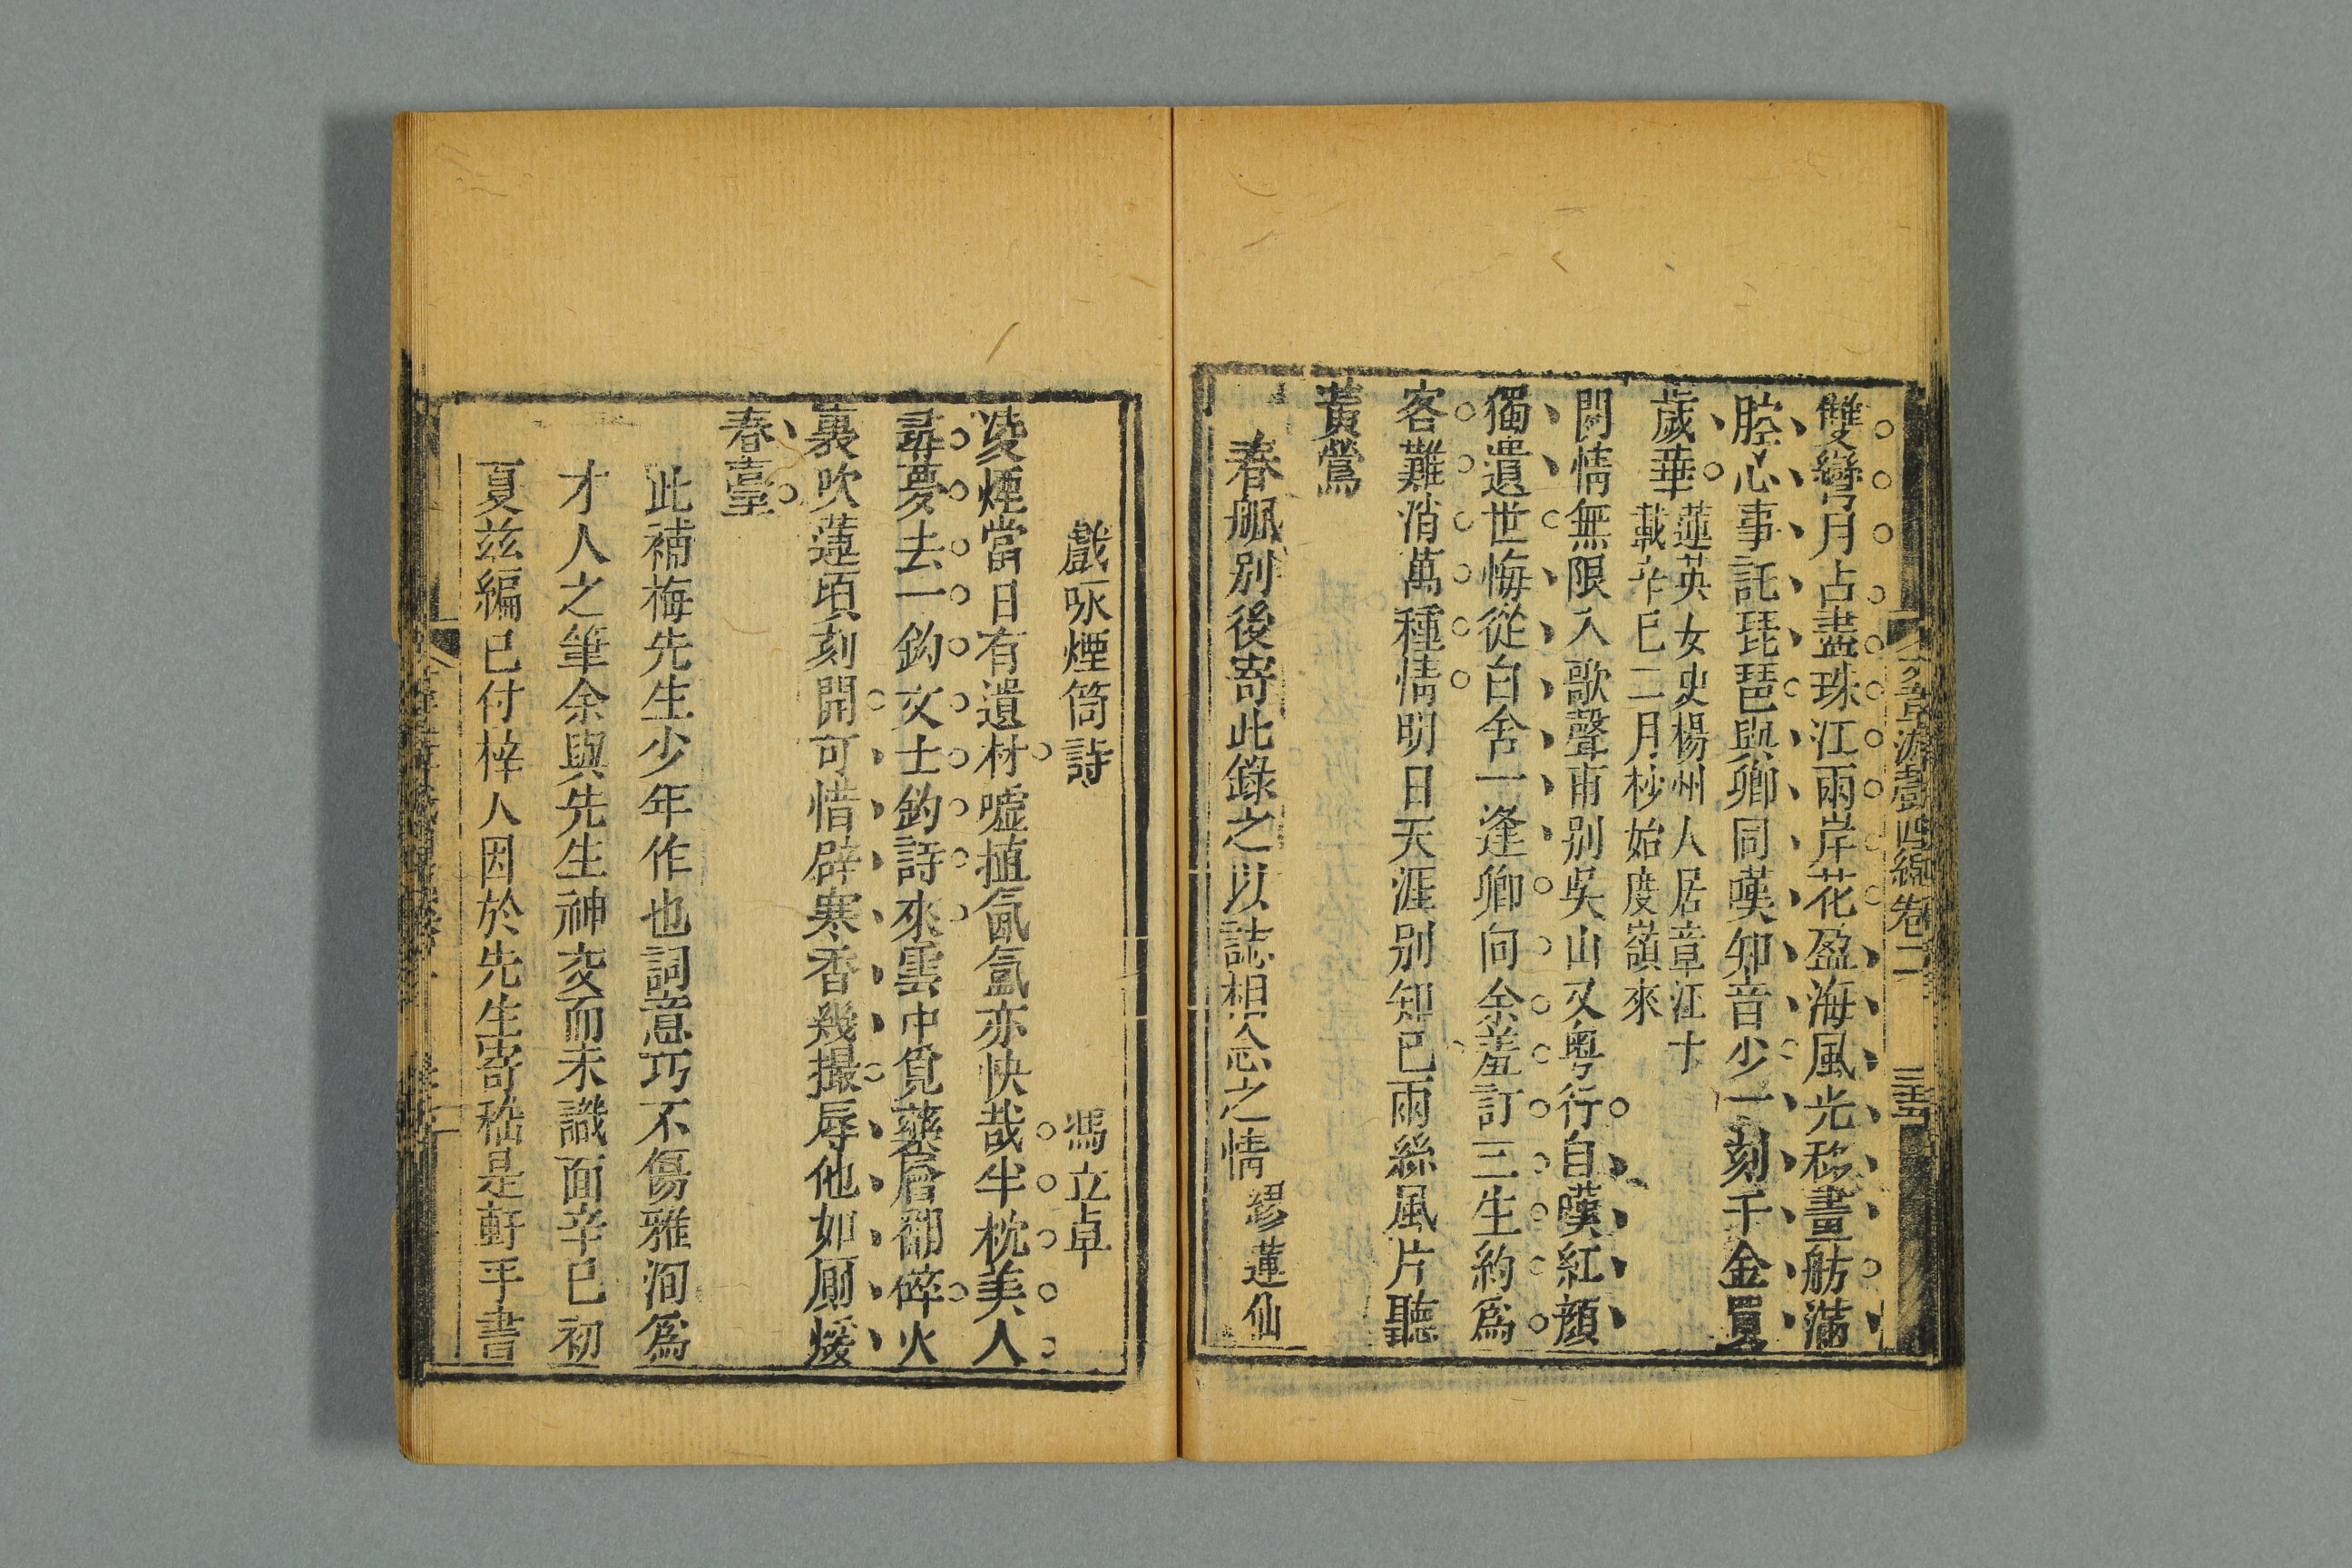 雙彎月占盡珠江兩岸花盈海風光移畫舫滿
腔心事託琵琶與卿同嘆知音少一刻千金買
歲華
蓮英女史楊州人居章江十
載辛巳二月杪始度嶺來
閱情無限入歌聲甫别吳山又粤行自嘆紅顔
獨遺世悔從白舍一逢卿向余羞訂三生約爲
客難消萬種情明日天涯别知已兩絲風片聽
黃鶯
春舩别後寄此錄之以誌相念之情
繆蓮仙
文章游戲四編卷二
戲咏煙筒詩
馮立卓
凌煙當日有遺材嘘植氤氳亦快哉半枕美人
尋夢去一鈎文士釣詩來雲中覓藥層都碎火
裏吹蓮頃刻開可惜辟寒香幾撮辱他如厠煖
春臺
此補梅先生少年作也詞意巧不傷雅洵爲
才人之筆余與先生神交而未識面辛巳初
夏兹編已付梓人因於先生寄嵇是軒手書